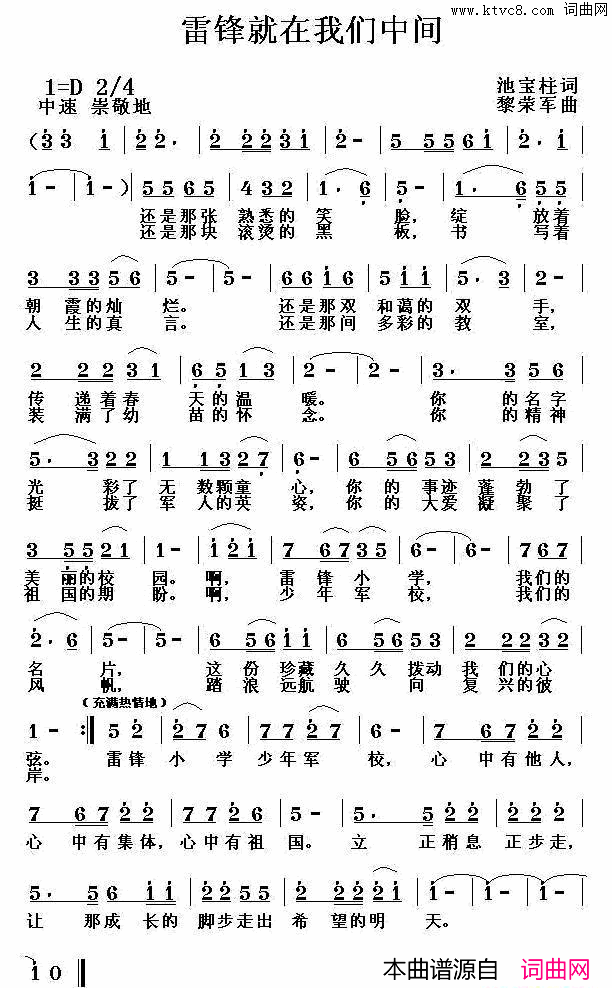 www.ktvc8.com 词曲网
雷锋就在我们中间
1=D 2/4
中速 崇敬地
池宝柱词
黎荣军曲
(3 3 1 | 2 2· | 2 2 2 3 1 | 2 - | 5 5 5 6 1 | 2 2· |
1 - | 1 - ) | 5 5 6 5 | 4 3 2 | 1· 6 | 5 - | 1· 6 | 5 5 |
还是那张 熟悉的 笑 脸, 绽 放着
还是那块 滚烫的 黑 板, 书 写着
3 3 3 5 6 | 5 - | 5 - | 6 6 1 6 | 5 1 1 | 5· 3 | 2 - |
朝 霞的灿 烂。 还是那双 和蔼的 双 手,
人 生的真 言。 还是那间 多彩的 教 室,
2 2 2 3 1 | 6 5 1 3 | 2 - | 2 - | 3· 3 | 5 6 |
传 递着春 天的温 暖。 你 的名字
装 满了幼 苗的怀 念。 你 的精神
5· 3 2 2 | 1 1 3 2 7 | 6 - | 6 5 6 5 3 | 2 2 3 5 |
光 彩了 无 数颗童 心, 你 的 事迹 蓬 勃了
挺 拔了 军 人的英 姿, 你 的 大爱 凝 聚了
3 5 5 2 1 | 1 - | 1 2 1 | 7 6 7 3 5 | 6 - | 6 - | 7 6 7 |
美 丽的校 园。 啊, 雷 锋 小 学, 我们的
祖 国的期 盼。 啊, 少 年 军 校, 我们的
2· 6 | 5 - | 5 - | 6 5 6 1 1 | 6 5 6 5 3 | 2 2 2 3 2 |
名 片, 这 份 珍藏 久 久 拨动 我 们的心
风 帆, 踏 浪 远航 驶 向 复 兴的彼
(充满热情地)
1 - :‖ 5 2 | 2 7 6 | 5 6 3 5 | 2 - | 7 7 | 6 7 2 2 |
弦。 雷锋 小 学 少年军 校, 心 中有他人,
岸。
7 6 7 2 2 | 7 7 2 2 | 5 - | 5· 5 | 2 2 2 2 |
心 中有集体, 心中有祖 国。 立 正稍息 正步走,
5· 5 6 1 1 | 2 2 5 5 | 2 2 2 | 1 - | 1 - | 1 - |
让 那成 长的 脚步走出 希 望的明 天。
1 0 ‖
本曲谱源自 词曲网